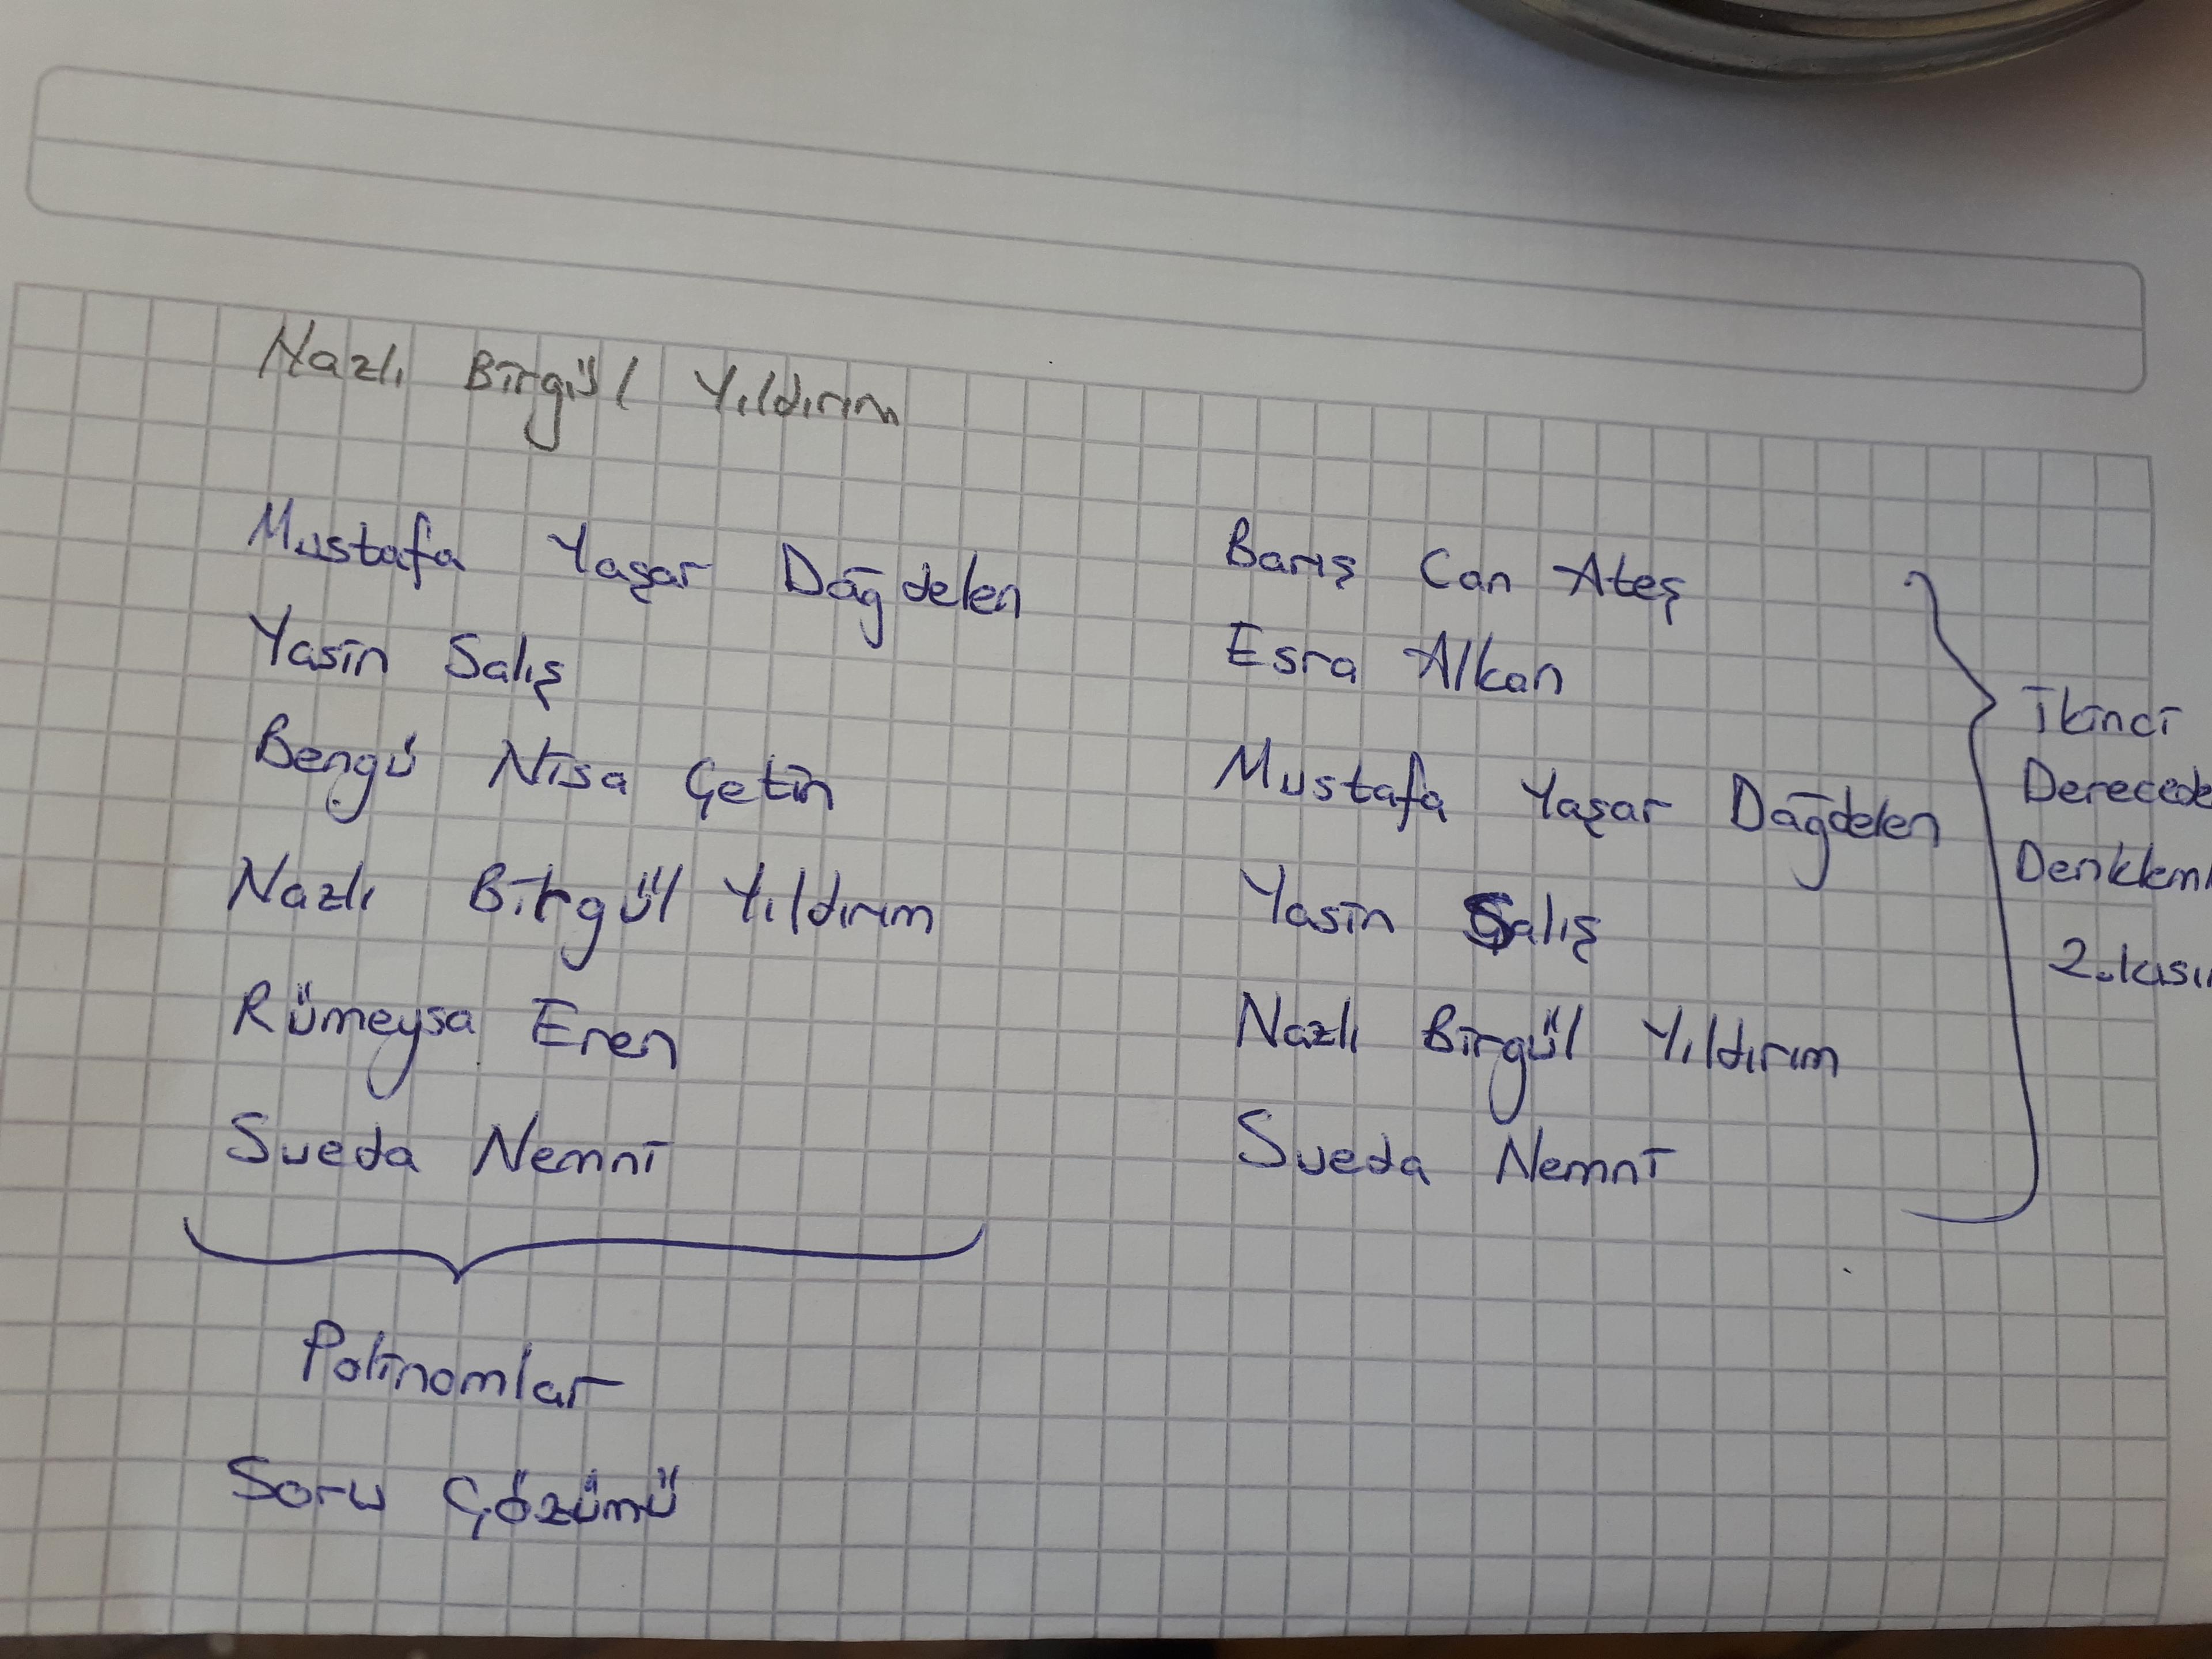 Nazlı Birgül Yıldırım
Mustafa Yaşar Dağdelen
Yasin Salış
Bengü Nisa Çetin
Nazlı Birgül Yıldırım
Rümeysa Eren
Sueda Nemni
Polinomlar
Soru Çözümü
Barış Can Ateş
Esra Alkan
Mustafa Yaşar Dağdelen
Yasin Salış
Nazlı Birgül Yıldırım
Sueda Nemni
İkinci
Derecede
Denkleml
2.kısı